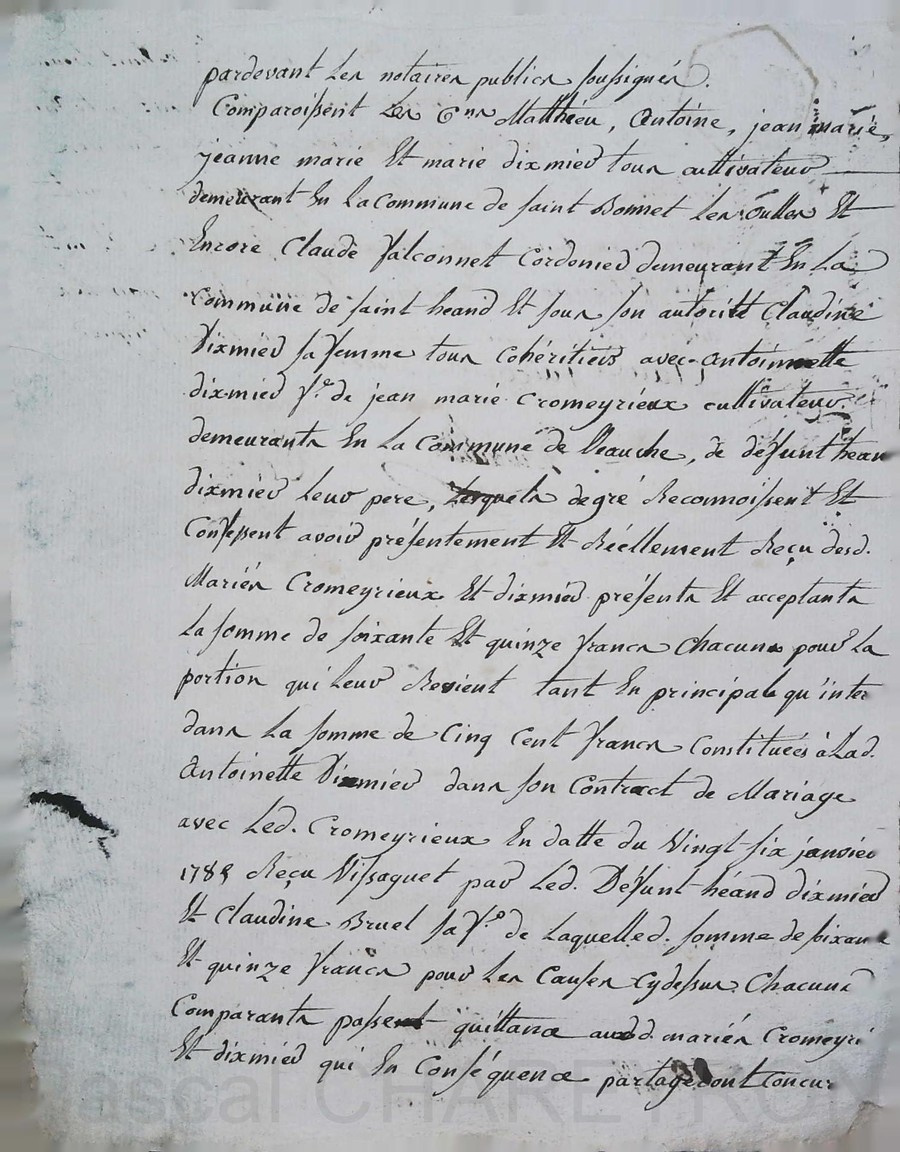 pardevant Les notaires publics soussignés.
Comparoissent Les Cens Matthieu, Antoine, jean marie,
jeanne marie Et marie dixmier tous cultivateurs
demeurant En La Commune de saint Bonnet Les oulles Et
Encore Claude falconnet Cordonier demeurant En La
Commune de saint heand Et sous son autorité Claudine
Dixmier sa femme tous Cohéritiers avec Antoinette
dixmier fe. de jean marie Cromeyrieux cultivateur
demeurants En La Commune de Veauche, de défunt hean
dixmier Leur pere, Lesquels de gré Reconnoissent Et
Confessent avoir présentement Et Réellement Reçu desd.
Mariés Cromeyrieux Et dixmier présents Et acceptants
La somme de soixante Et quinze francs Chacuns pour La
portion qui Leur Revient tant En principal qu'inter
dans La somme de Cinq Cent francs Constituées à Lad.
Antoinette Dixmier dans son Contract de Mariage
avec Led. Cromeyrieux En datte du Vingt six janvier
1789 Reçu Vissaguet par Led. Défunt héand dixmier
Et Claudine Bruel sa fe. de Laquelled. somme de soixante
Et quinze francs pour Les Causes Cydessus Chacuns
Comparants passent quittance auxd. mariés Cromeyri
Et dixmier qui En Conséquence partageront Concur
Pascal CHAREYRON